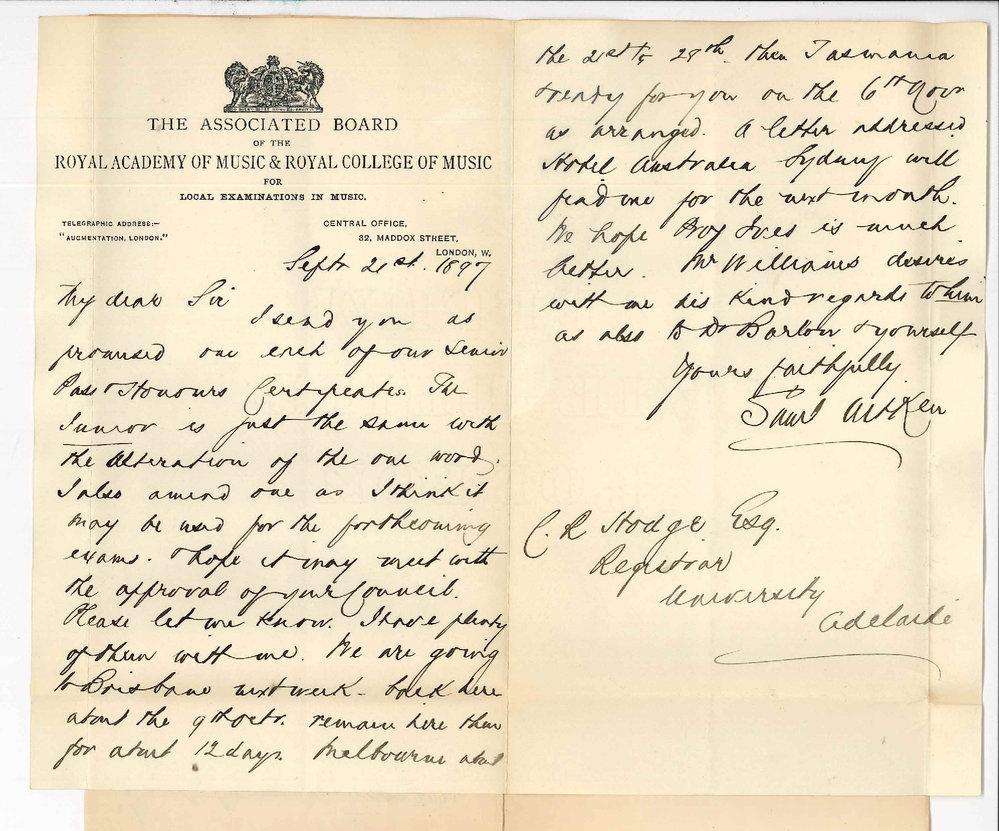 THE ASSOCIATED BOARD
OF THE
ROYAL ACADEMY OF MUSIC & ROYAL COLLEGE OF MUSIC
FOR
LOCAL EXAMINATIONS IN MUSIC.
TELEGRAPHIC ADDRESS:-
"AUGMENTATION, LONDON."
CENTRAL OFFICE,
32, MADDOX STREET,
LONDON, W.
Septr 21st. 1897
My dear Sir
I send you as
promised one each of our Senior
Pass & Honours Certificates. The
Junior is just the same with
the alteration of the one word.
I also amend one as I think it
may be used for the forthcoming
exams. & hope it may meet with
the approval of your Council.
Please let me know. I have plenty
of them with me. We are going
to Brisbane next week - back here
about the 9th Octr. remain here then
for about 12 days. Melbourne about
the 21st to 28th. then Tasmania
& ready for you on the 6th Novr
as arranged. A letter addressed
Hotel Australia Sydney will
find me for the next month.
We hope Prof Ives is much
better. Mr Williams desires
with me his kind regards to him
as also to Dr Barlow & yourself
Yours faithfully
Saml Aitken
C. R Hodge Esq.
Registrar
University
Adelaide